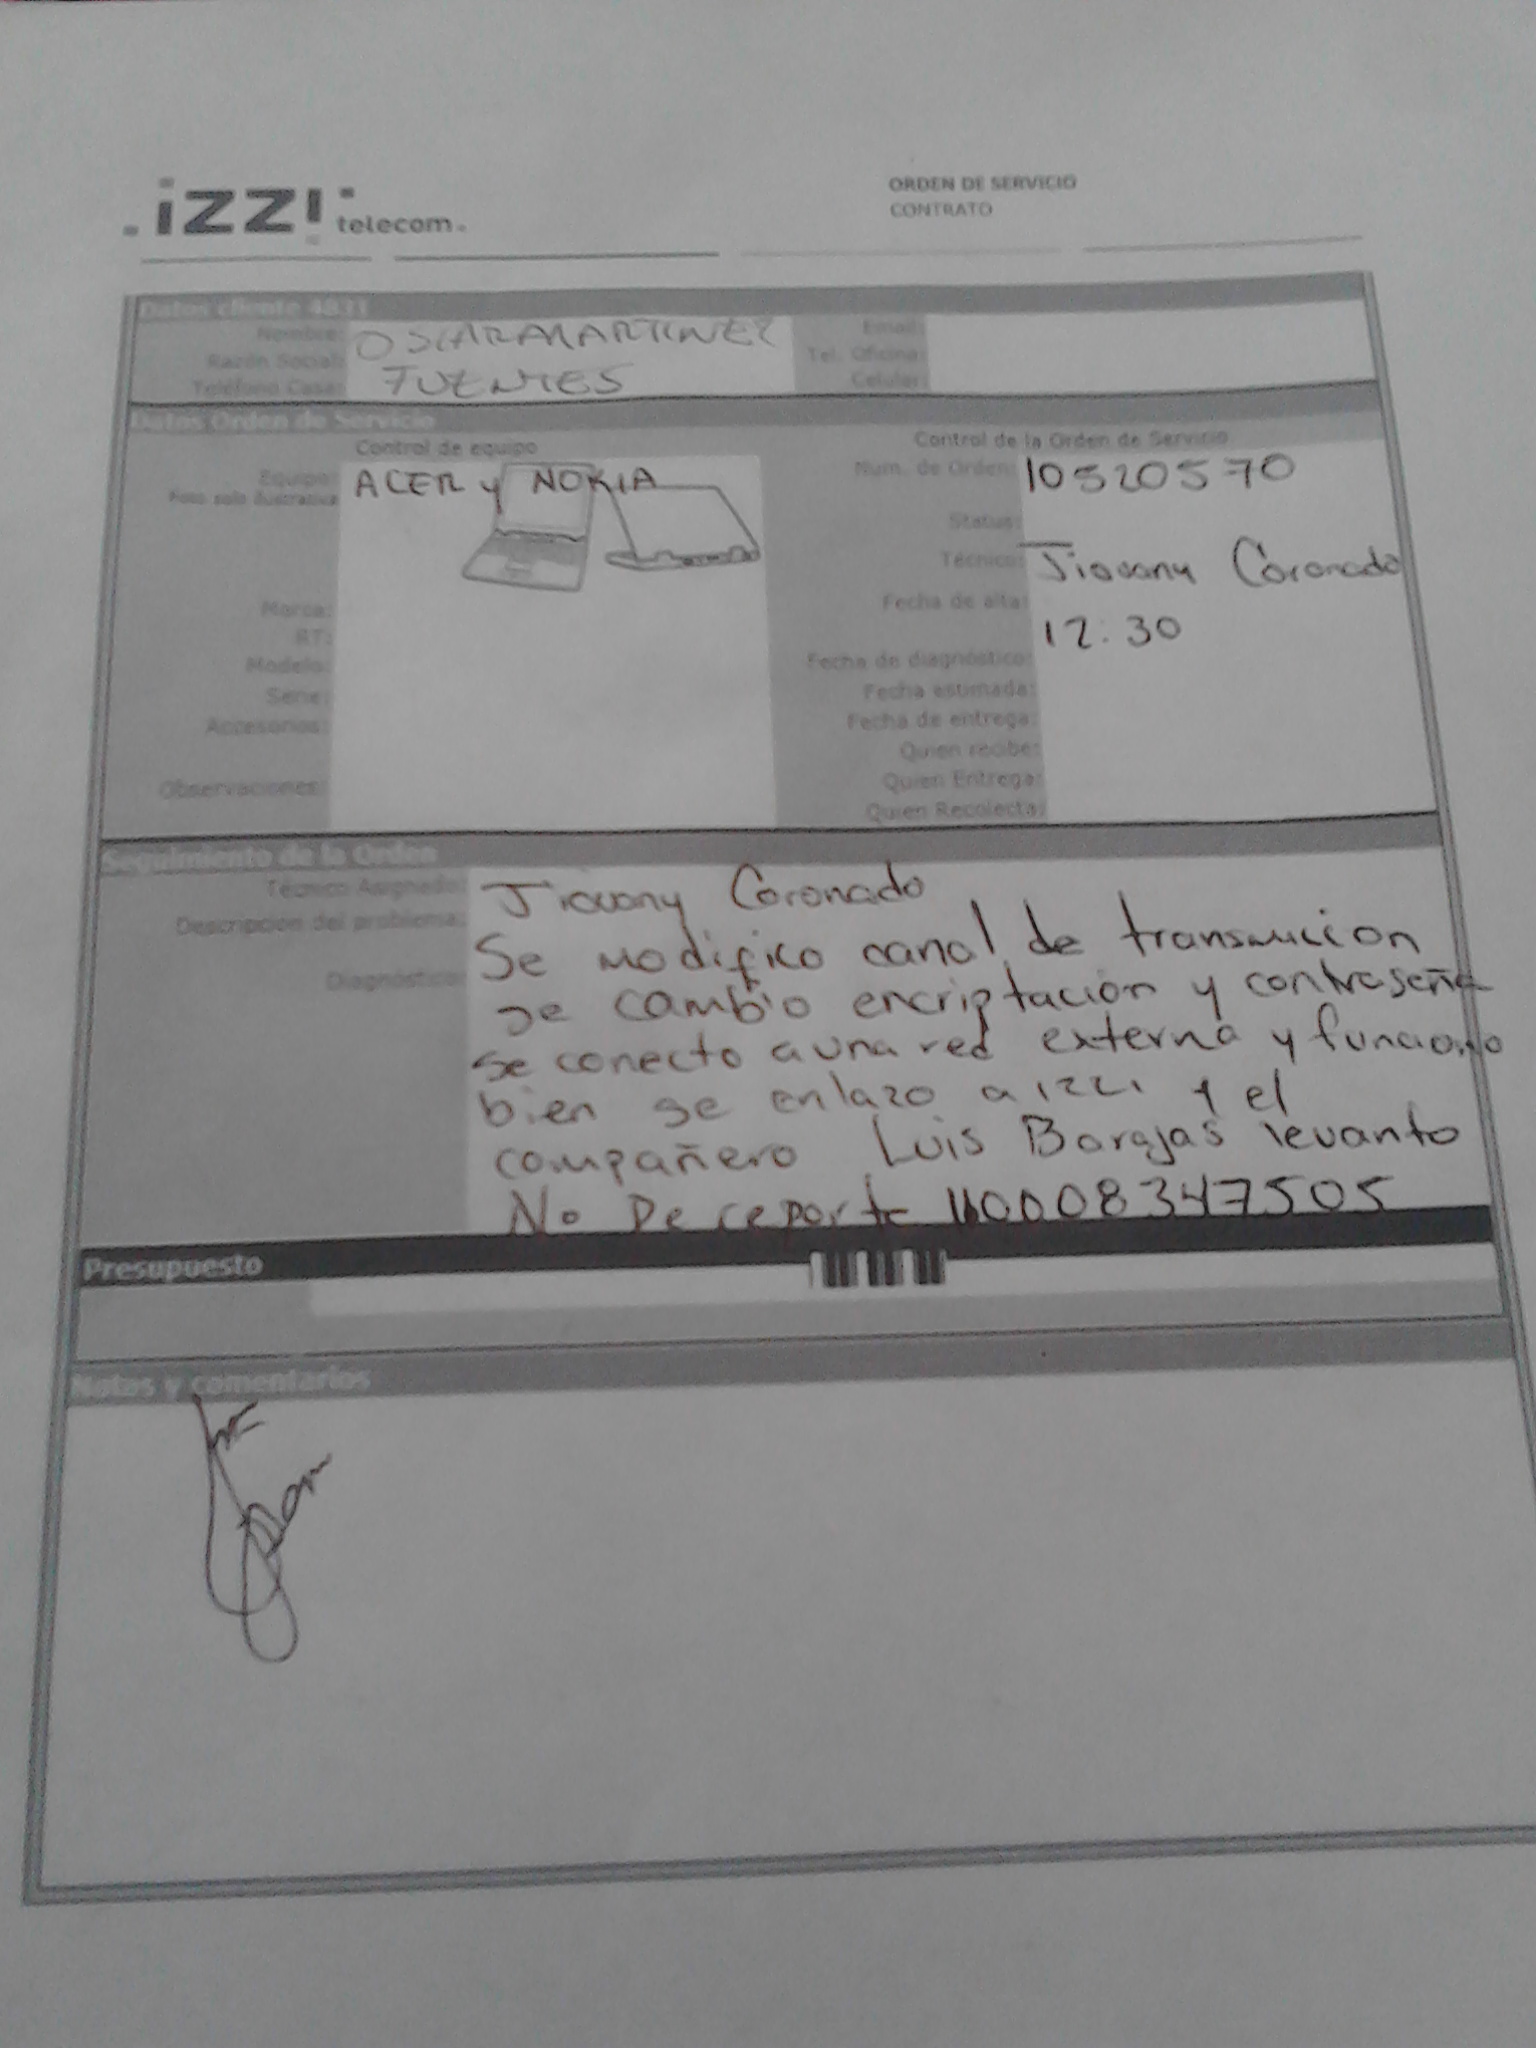 izzi telecom
ORDEN DE SERVICIO
CONTRATO
Datos cliente 4831
Nombre: OSCAR MARTINEZ
Razón Social:
Teléfono Casa: FUENTES
Email:
Tel. Oficina:
Celular:
Datos Orden de Servicio
Control de equipo
Equipo: ACER y NOKIA
Foto solo ilustrativa
Marca:
RT:
Modelo:
Serie:
Accesorios:
Observaciones:
Control de la Orden de Servicio
Num. de Orden: 10520570
Status:
Técnico: Jiovany Coronado
Fecha de alta:
12:30
Fecha de diagnóstico:
Fecha estimada:
Fecha de entrega:
Quien recibe:
Quien Entrega:
Quien Recolecta:
Seguimiento de la Orden
Técnico Asignado: Jiovany Coronado
Descripción del problema:
Diagnóstico:
Se modifico canal de transmicion
se cambio encriptación y contraseña
se conecto a una red externa y funciono
bien se enlazo a izzi y el
compañero Luis Barajas levanto
No De reporte 110008347505
Presupuesto
Notas y comentarios